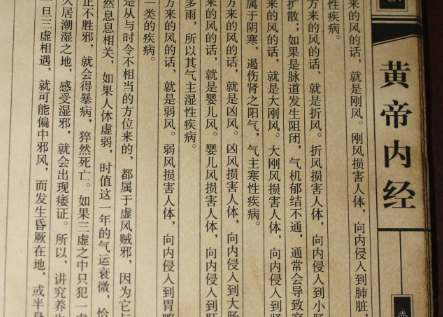 黄帝内经
方来的风的话，就是刚风。刚风损害人体，向内侵入到肺脏，
方来的风的话，就是折风。折风损害人体，向内侵入到小肠
扩散；如果是脉道发生阻闭，气机郁结不通，通常会导致
方来的风的话，就是大刚风。大刚风损害人体，向内侵入到
属于阴寒，遏伤肾之阳气，气主寒性疾病。
方来的风的话，就是凶风。凶风损害人体，向内侵入到大肠
方来的风的话，就是婴儿风。婴儿风损害人体，向内侵入到肝
方来的风的话，就是弱风。弱风损害人体，向内侵入到胃
多雨，所以其气主湿性疾病。
一类的疾病。
是从与时令不相当的方位来的，都属于虚风贼邪，因为它
然息息相关，如果人体虚弱，时值这一年的气运衰微，恰
正不胜邪，就会得暴病，猝然死亡。如果三虚之中只犯一
人居潮湿之地，感受湿邪，就会出现痿证。所以，讲究养
旦三虚相遇，就可能偏中邪风，而发生昏厥在地，或半身